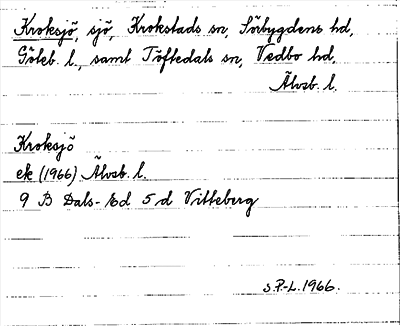 Kroksjö, sjö, Krokstads sn, Sörbygdens hd,
Göteb. l., samt Töftedals sn, Vedbo hd,
Älvsb. l.
Kroksjö
ek (1966) Älvsb. l.
9 B Dals-Ed 5 d Vitteberg
S.P.-L. 1966.